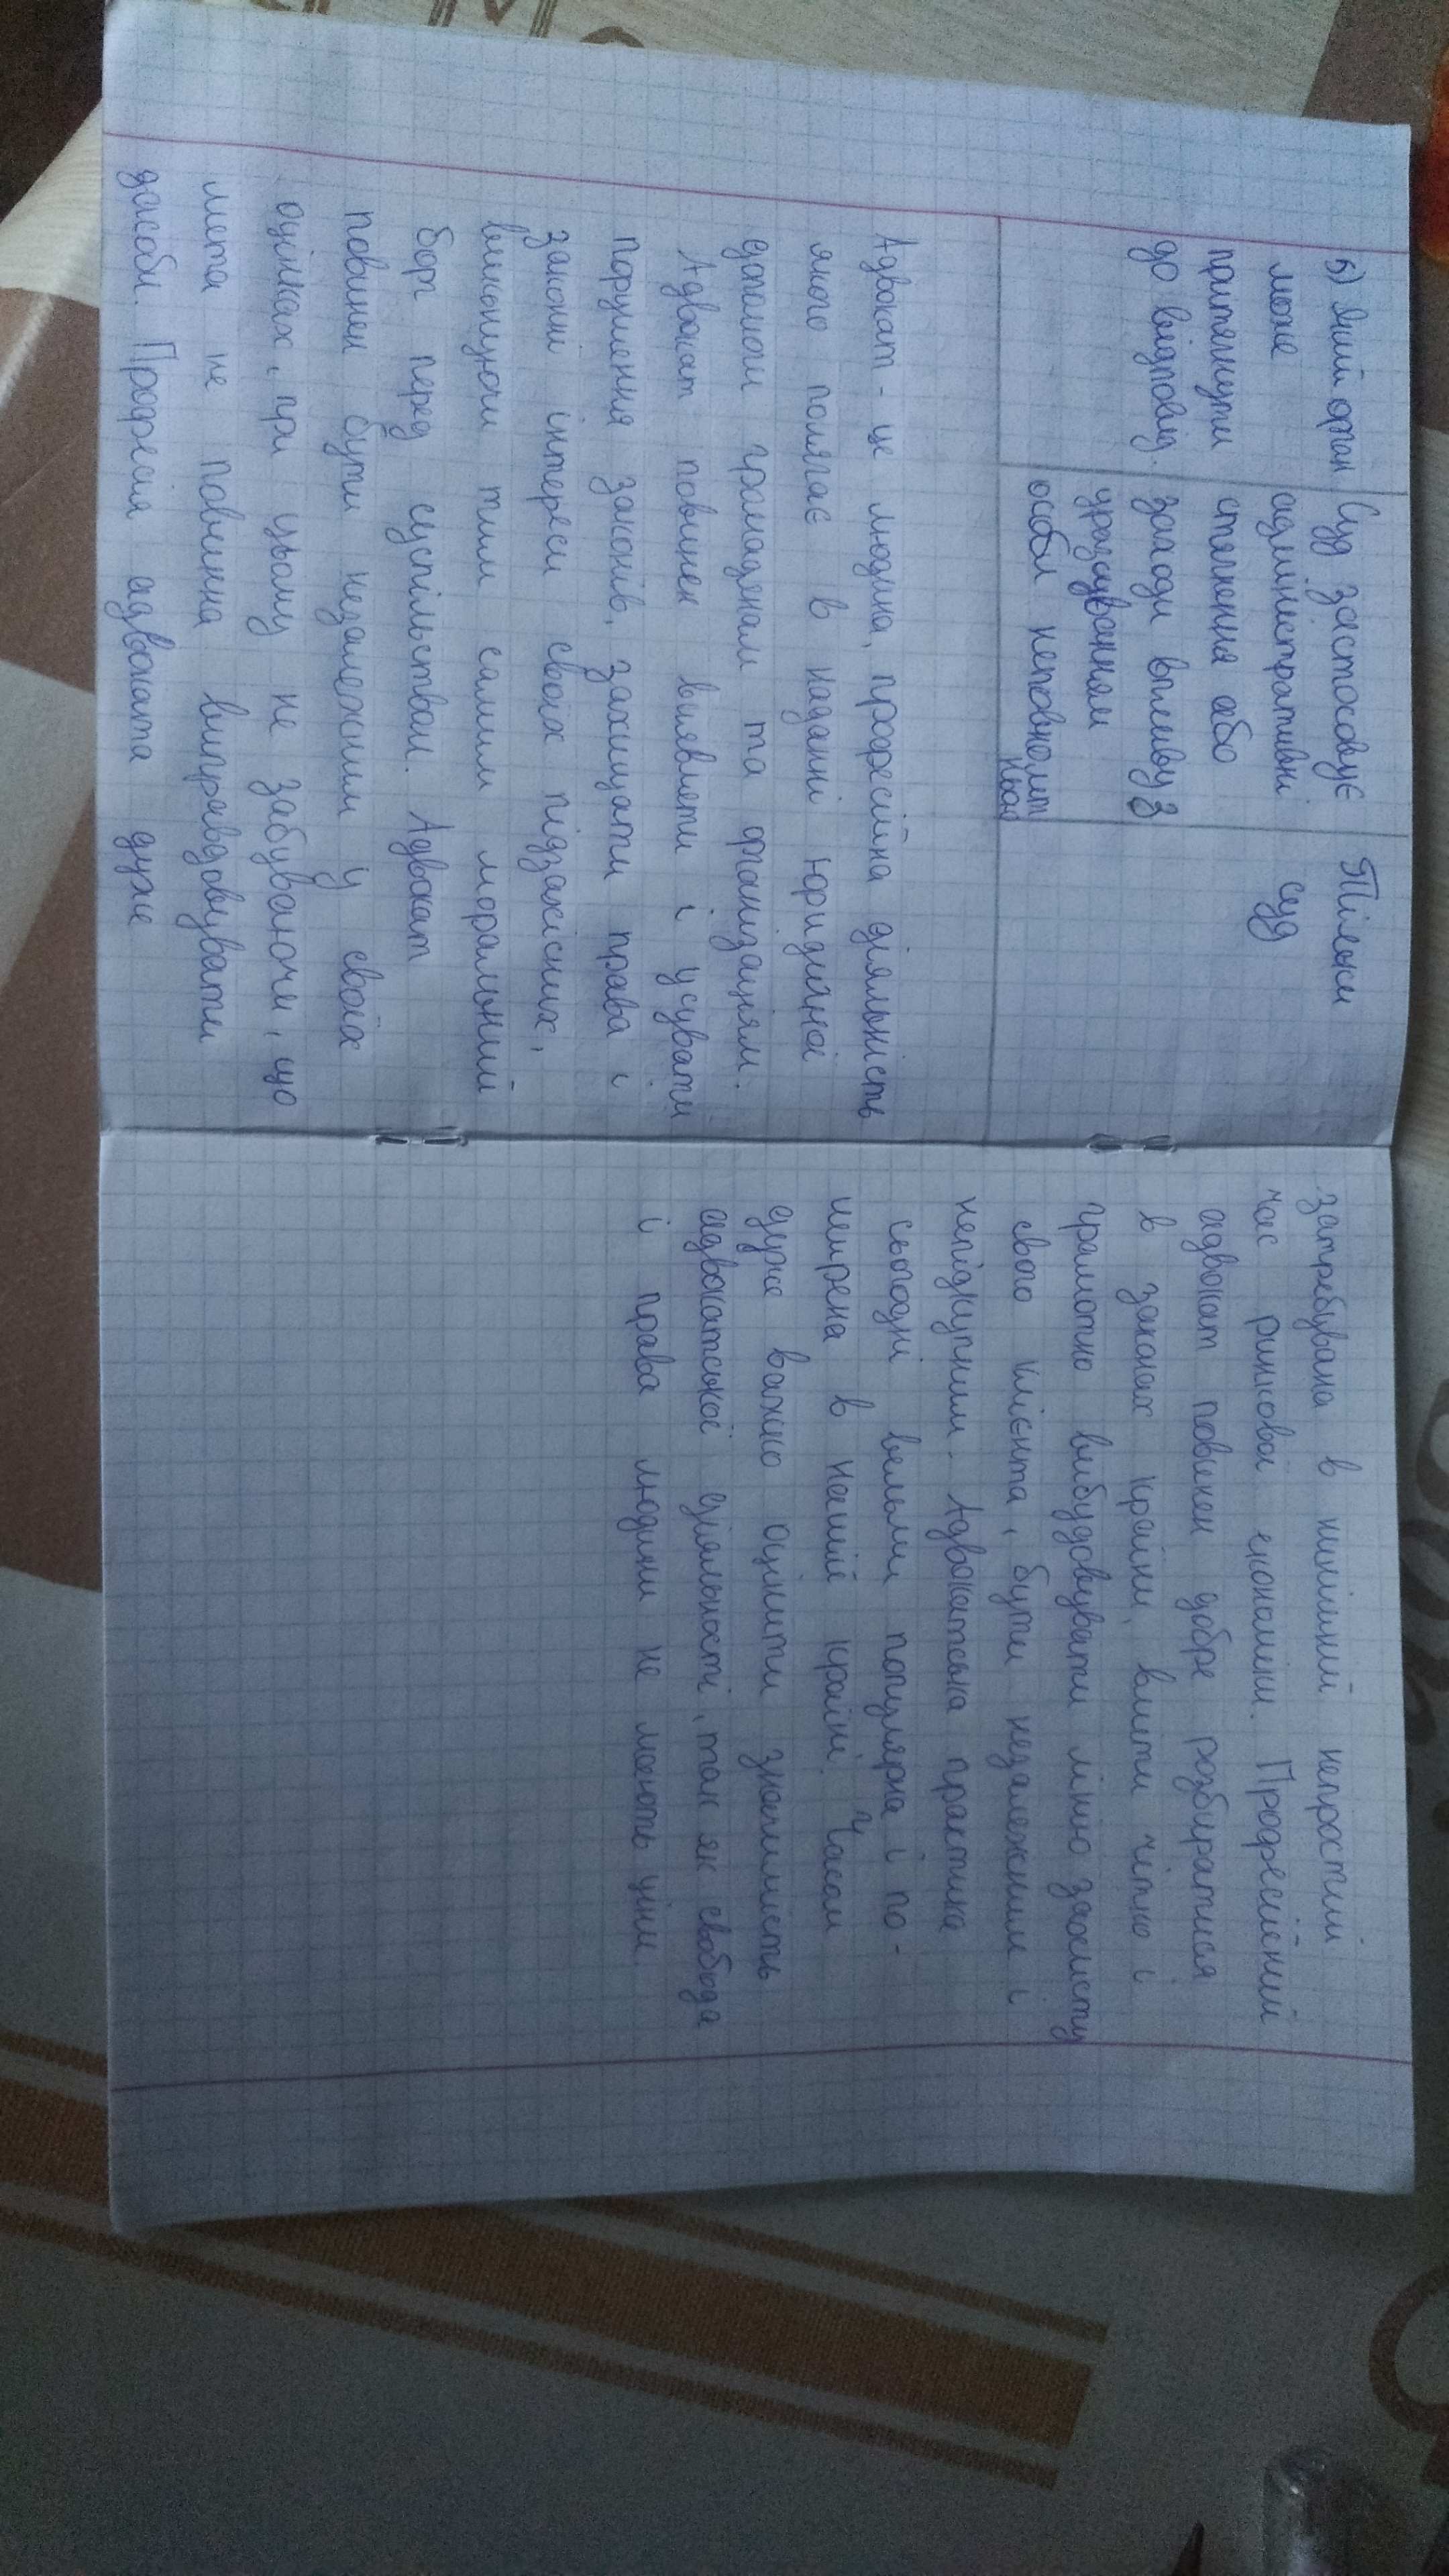 5) Який орган
може
притягнути
до відповід.
Суд застосовує
адміністративні
стягнення або
заходи впливу з
урахуванням
особи неповноліт
ньої
Тільки
суд
Адвокат - це людина, професійна діяльність
якого полягає в наданні юридичної
допомоги громадянам та організаціям.
Адвокат повинен виявляти і усувати
порушення законів, захищати права і
законні інтереси своїх підзахисних,
виконуючи тим самим моральний
борг перед суспільством. Адвокат
повинен бути незалежним у своїх
оцінках, при цьому не забуваючи, що
мета не повинна виправдовувати
засоби. Професія адвоката дуже
затребувана в нинішній непростий
час ринкової економіки. Професійний
адвокат повинен добре розбиратися
в законах країни, вміти чітко і
грамотно вибудовувати лінію захисту
свого клієнта, бути незалежним і
непідкупним. Адвокатська практика
сьогодні вельми популярна і по-
ширена в нашій країні. Часом
дуже важко оцінити значимість
адвокатської діяльності, так як свобода
і права людини не мають ціни